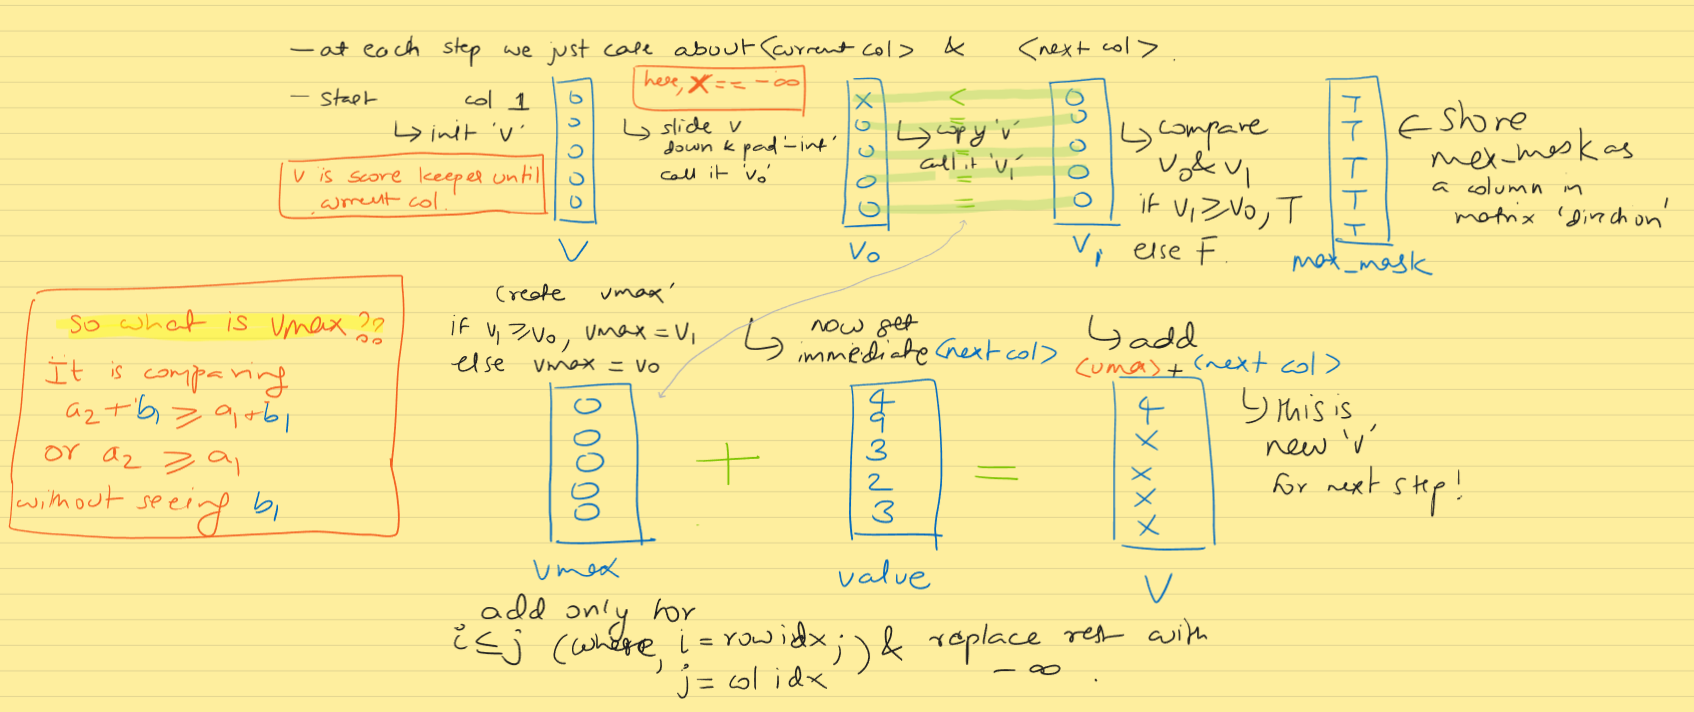 — at each step we just care about <current col> & <next col>.
— start col 1
↳ init 'v'
v is score keeper until
current col.
0
0
0
0
0
V
here, X == -∞
↳ slide v
down & pad -inf
call it 'v₀'
X
0
0
0
0
V₀
<
=
=
=
=
↳ copy 'v'
call it 'v₁'
0
0
0
0
0
V₁
↳ compare
v₀ & v₁
if v₁ ≥ v₀, T
else F.
T
T
T
T
T
max_mask
← store
max_mask as
a column in
matrix 'direction'
so what is vmax??
It is comparing
a₂ + b₁ ≥ a₁ + b₁
or a₂ ≥ a₁
without seeing b₁
create vmax'
if v₁ ≥ v₀, vmax = v₁
else vmax = v₀
0
0
0
0
0
vmax
+
↳ now get
immediate <next col>
4
9
3
2
3
value
=
↳ add
<vmax> + <next col>
4
X
X
X
X
V
↳ this is
new 'v'
for next step!
add only for
i ≤ j (where, i = row idx, j) & replace rest with
j = col idx -∞.